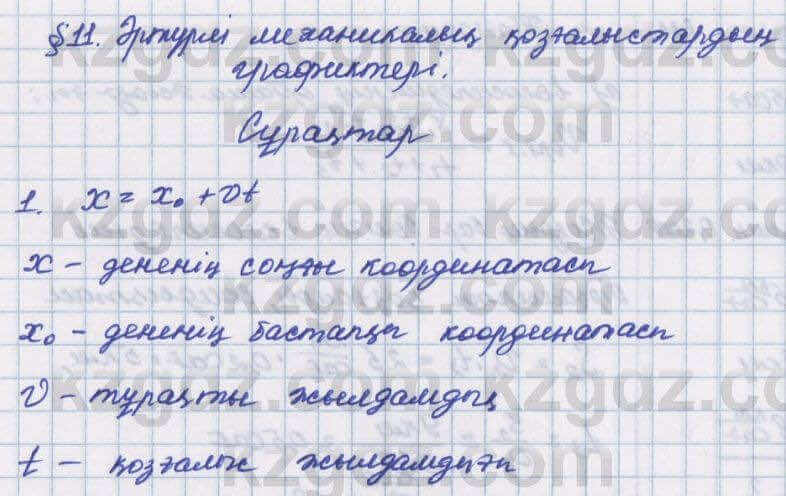 §11. Әртүрлі механикалық қозғалыстардың
графиктері.
Сұрақтар
1. x = x₀ + vt
x – дененің соңғы координатасы
x₀ – дененің бастапқы координатасы
v – тұрақты жылдамдық
t – қозғалыс жылдамдығы
kzgdz.com
kzgdz.com
kzgdz.com
kzgdz.com
kzgdz.com